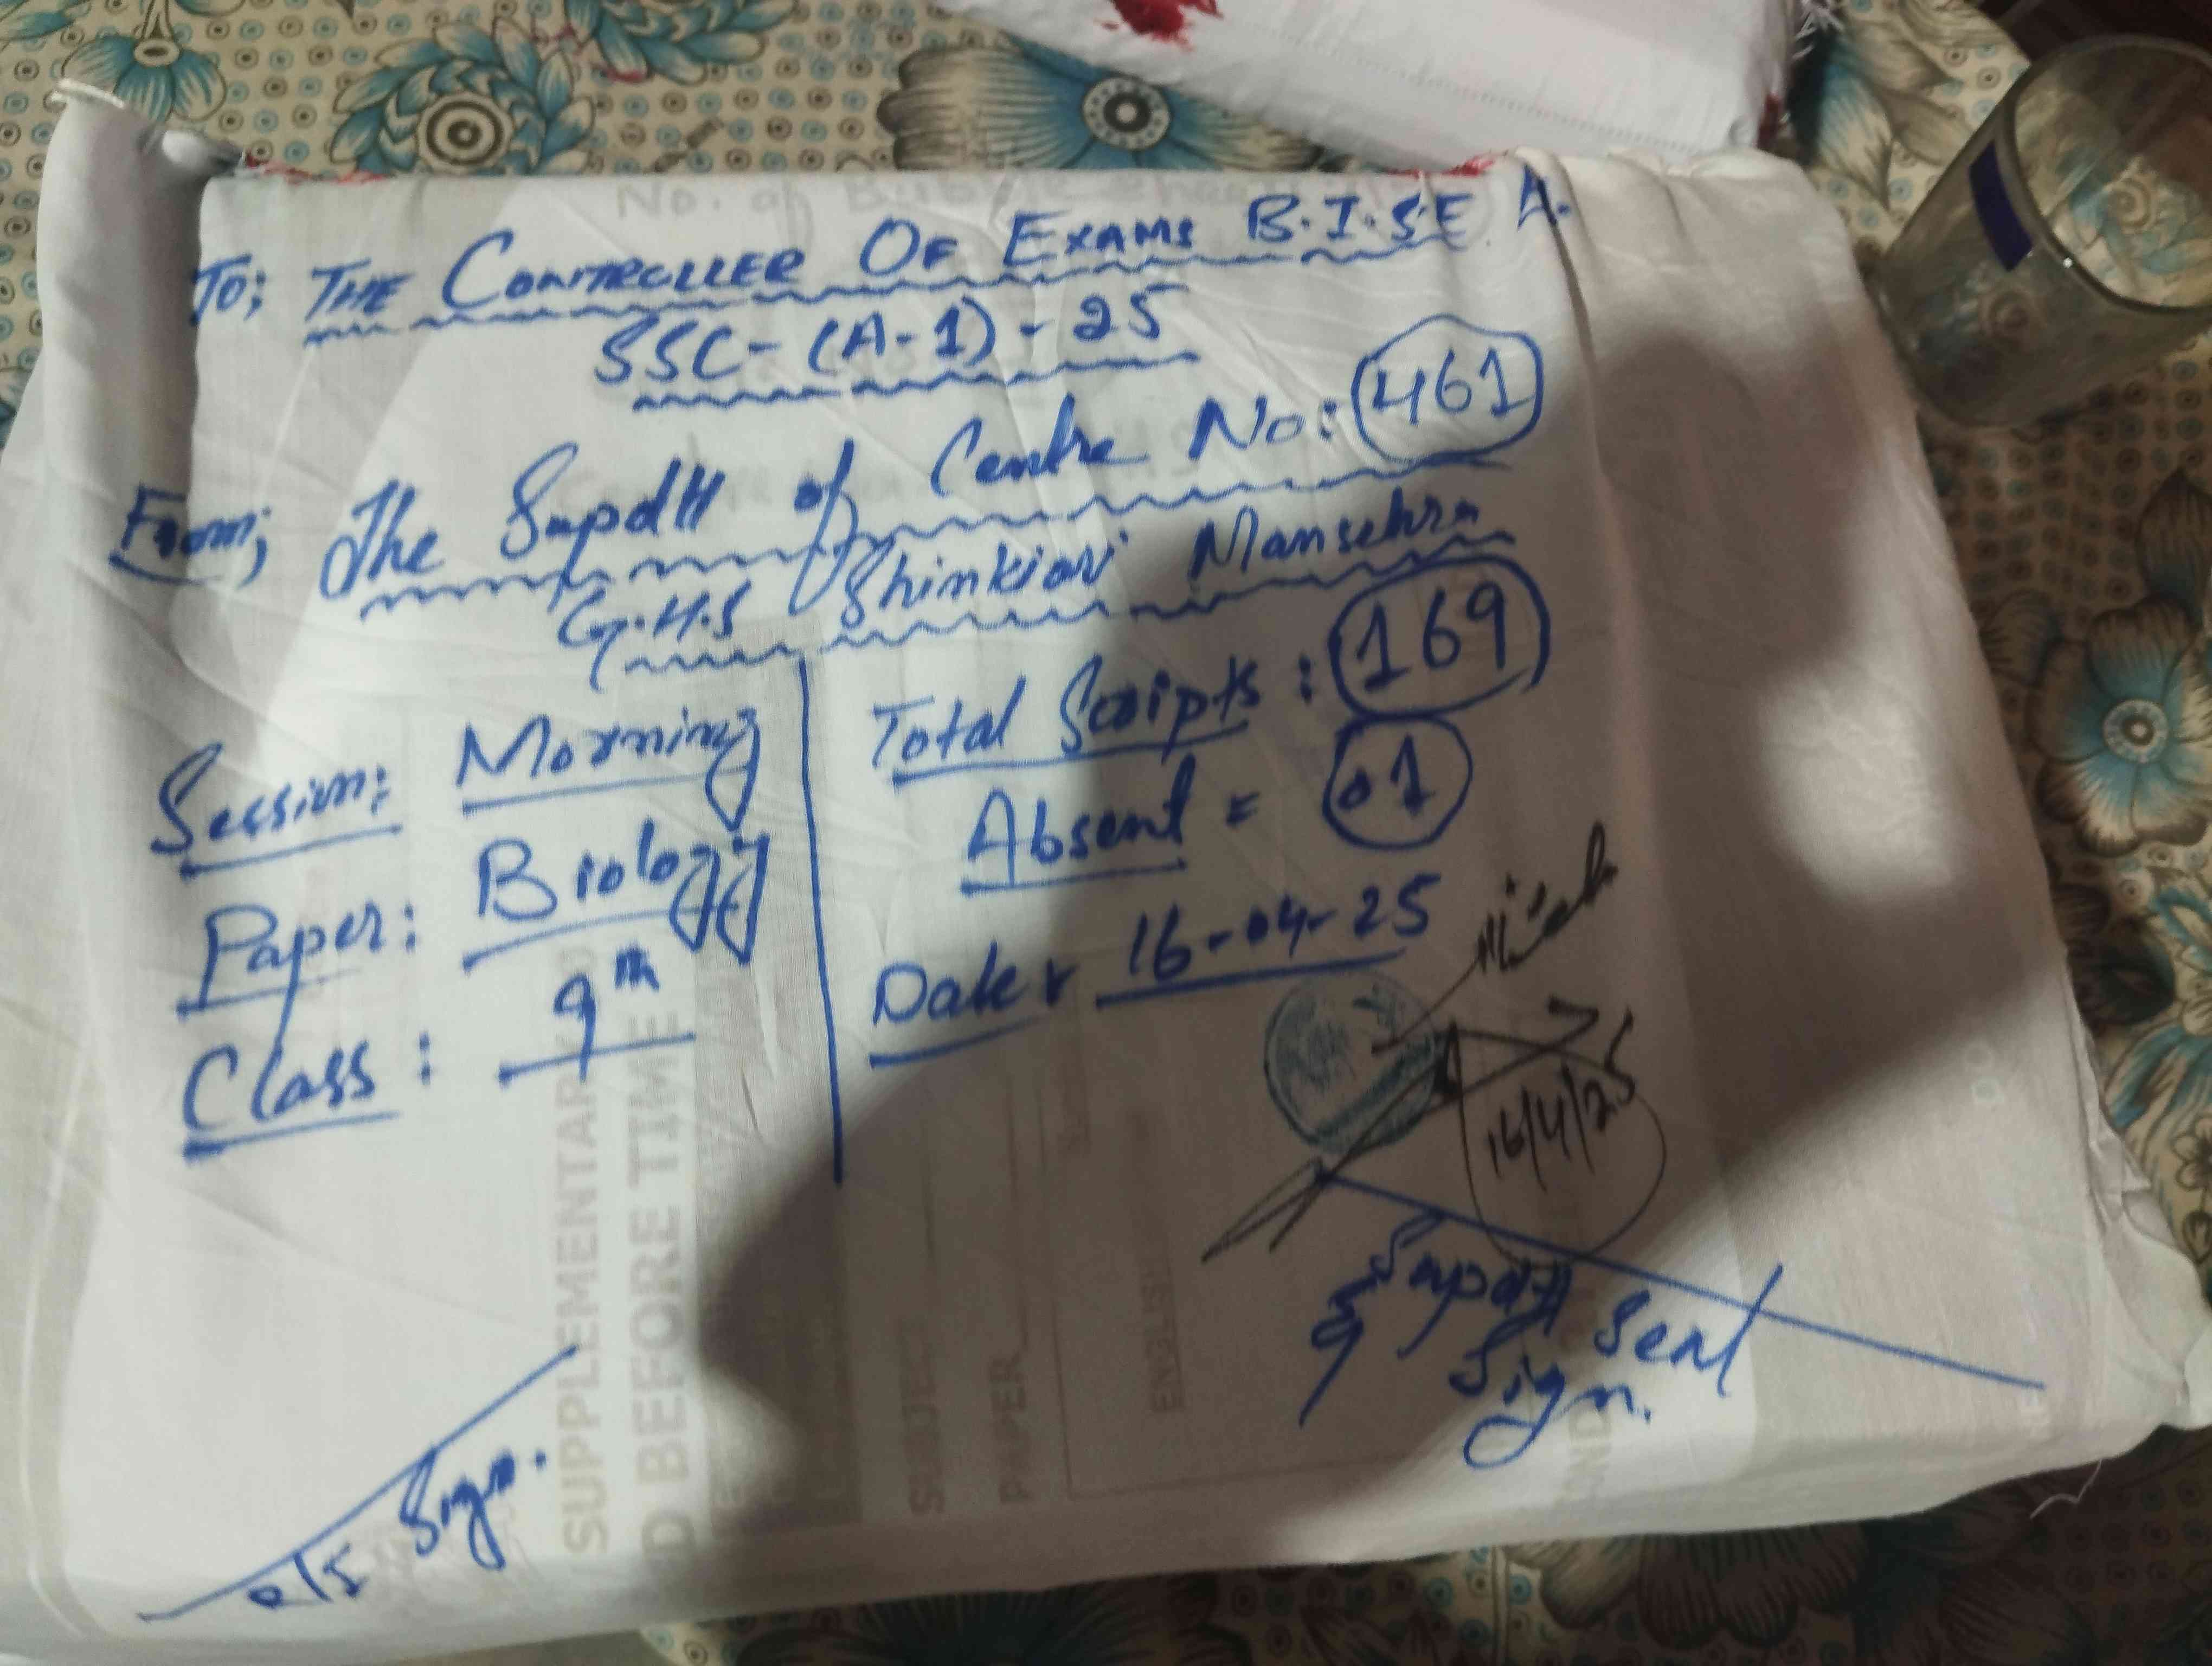 To; THE CONTROLLER OF EXAMS B.I.S.E. A.
SSC-(A-1)-25
From; The Supdtt of Centre No: 461
G.H.S Shinkiari Mansehra
Session: Morning
Paper: Biology
Class: 9th
Total Scripts: 169
Absent = 01
Date: 16-04-25
16/4/25
Supdtt Seal
& Sign.
R/I Sign.
SUPPLEMENTARY
D BEFORE TIME
SUBJE
PAPER
ENGLISH